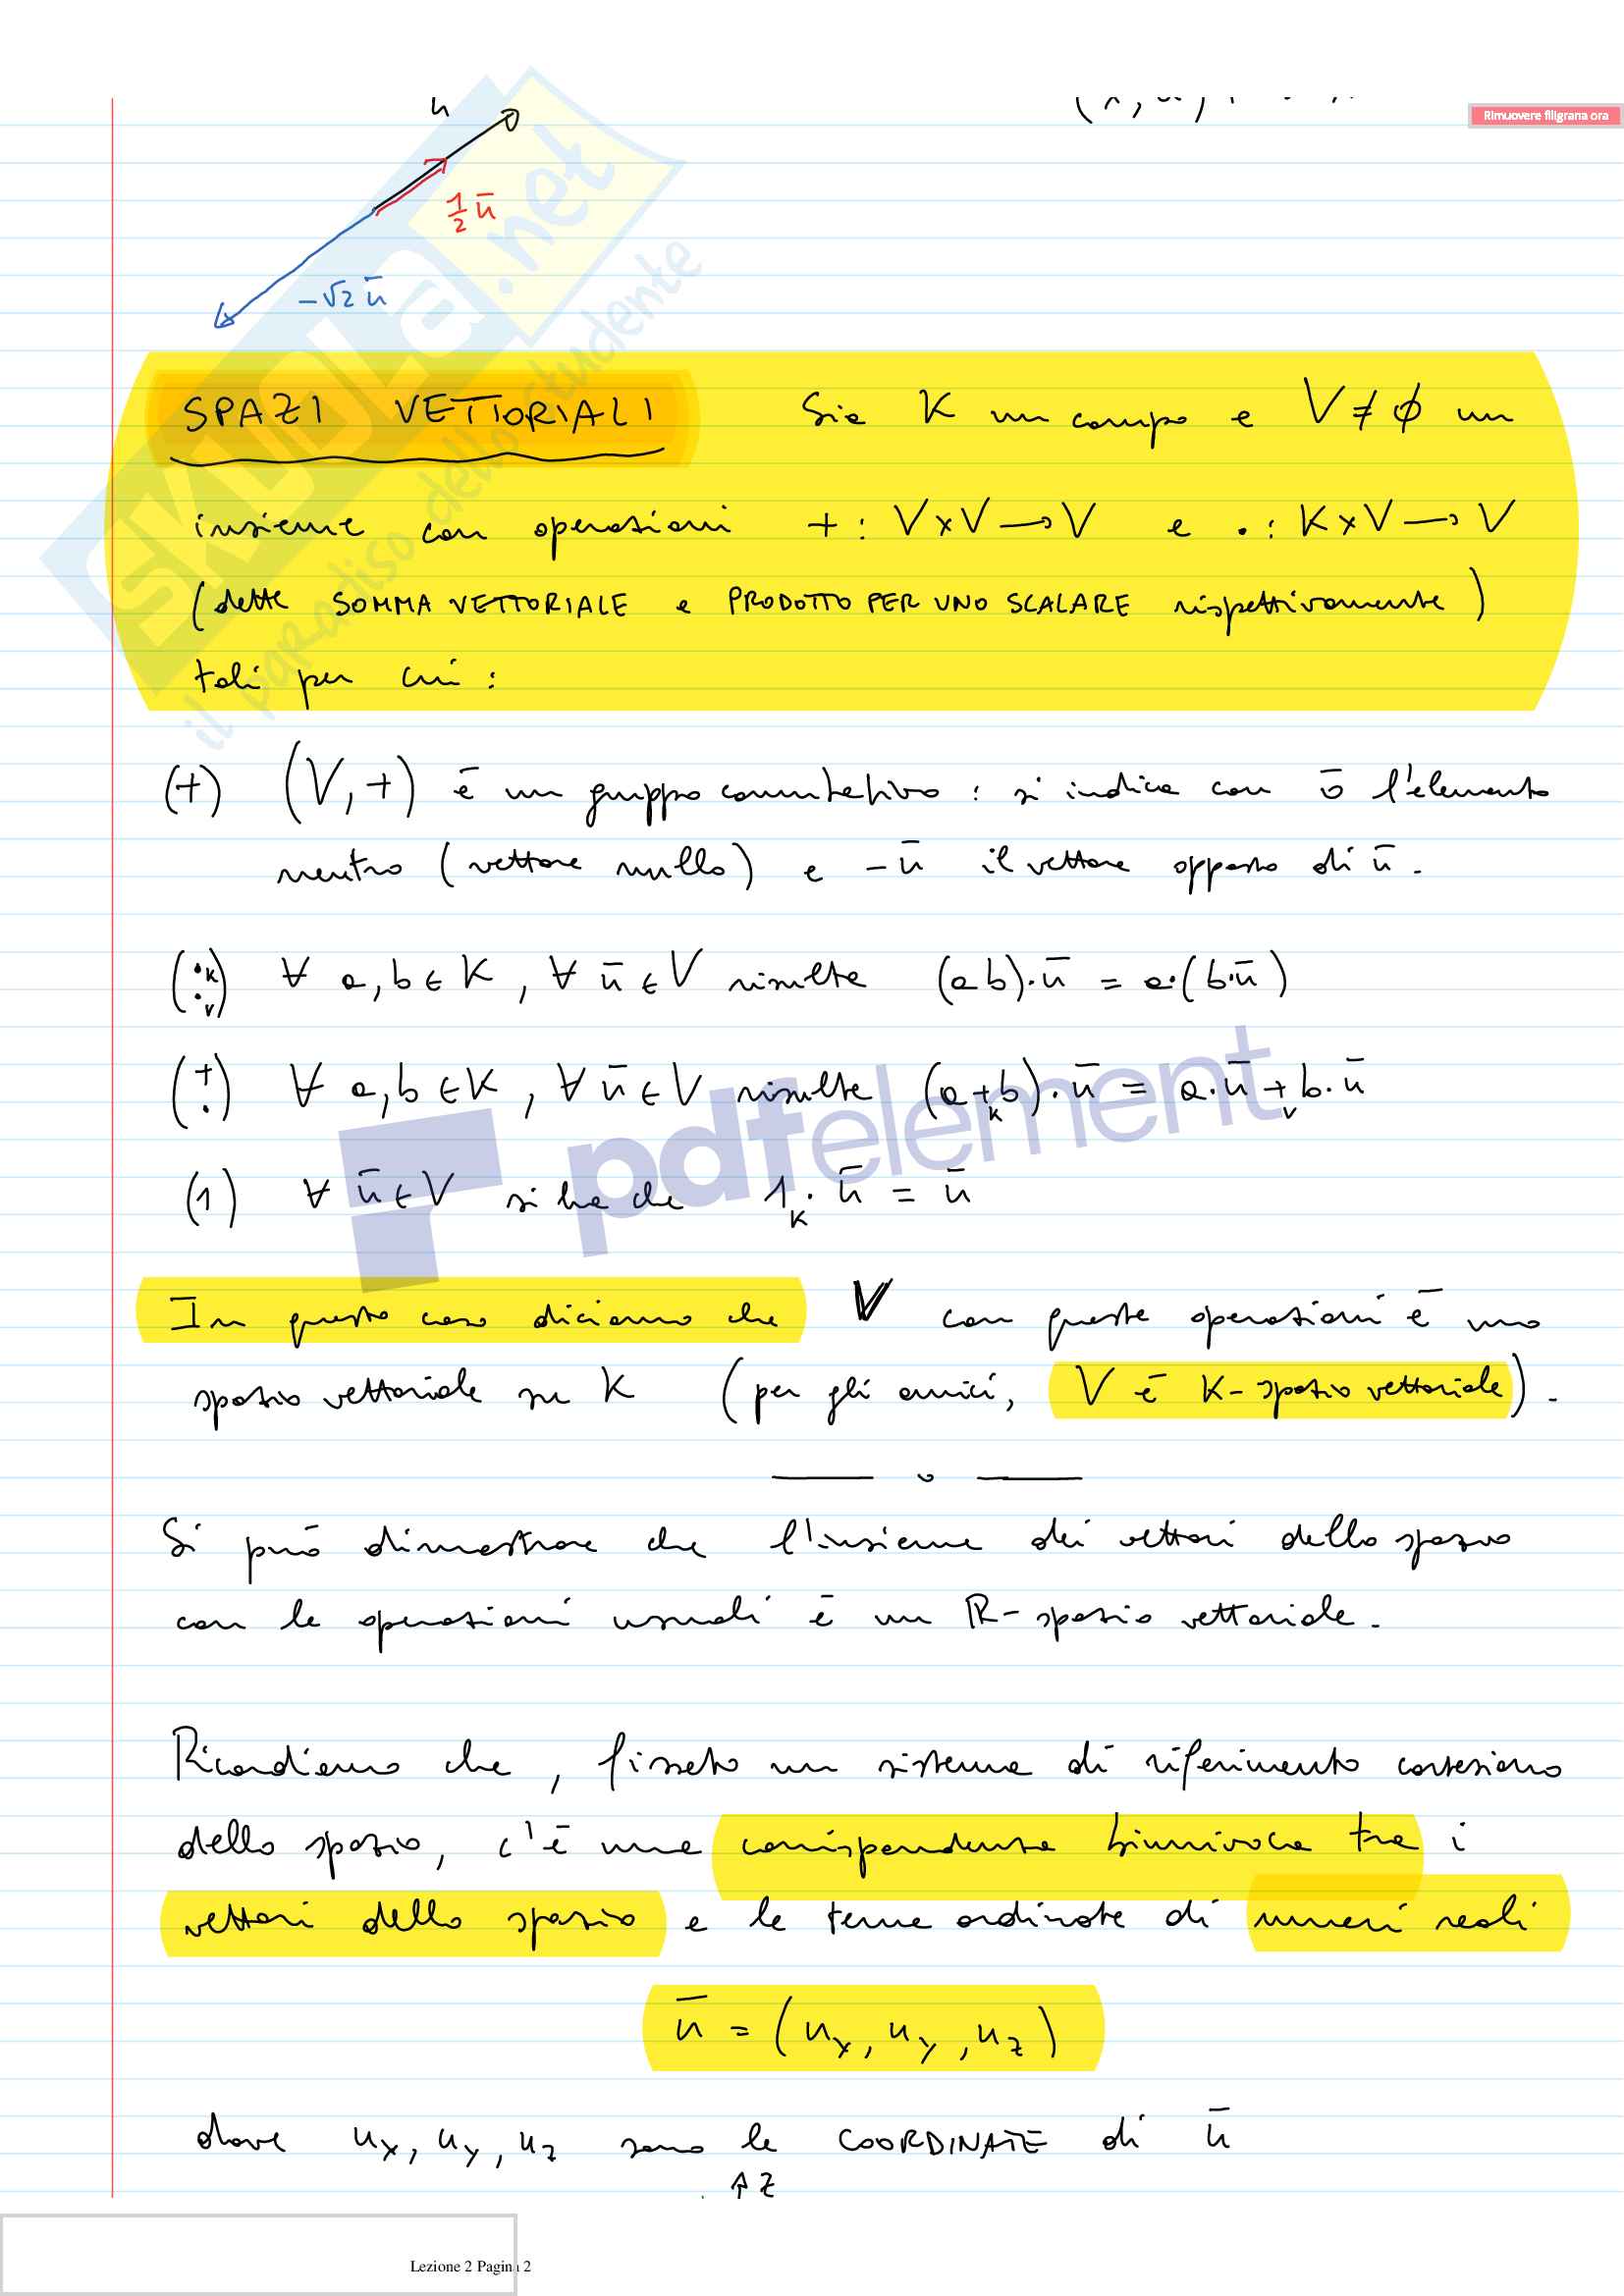 u
Rimuovere filigrana ora
1/2 ū
-√2 ū
SPAZI VETTORIALI Sia K un campo e V ≠ ∅ un
insieme con operazioni + : V×V → V e · : K×V → V
(dette SOMMA VETTORIALE e PRODOTTO PER UNO SCALARE rispettivamente)
tali per cui :
(+) (V, +) è un gruppo commutativo : si indica con ō l'elemento
neutro (vettore nullo) e -ū il vettore opposto di ū.
(·K ·V) ∀ a, b ∈ K, ∀ ū ∈ V risulta (ab)·ū = a·(b·ū)
(+ ·) ∀ a, b ∈ K, ∀ ū ∈ V risulta (a +K b)·ū = a·ū +V b·ū
(1) ∀ ū ∈ V si ha che 1K · ū = ū
In questo caso diciamo che V con queste operazioni è uno
spazio vettoriale su K (per gli amici, V è K-spazio vettoriale).
Si può dimostrare che l'insieme dei vettori dello spazio
con le operazioni usuali è un R-spazio vettoriale.
Ricordiamo che, fissato un sistema di riferimento cartesiano
dello spazio, c'è una corrispondenza biunivoca tra i
vettori dello spazio e le terne ordinate di numeri reali
ū = (ux, uy, uz)
dove ux, uy, uz sono le COORDINATE di ū
z
Lezione 2 Pagina 2
SKUOLA.net
il paradiso dello studente
pdfelement